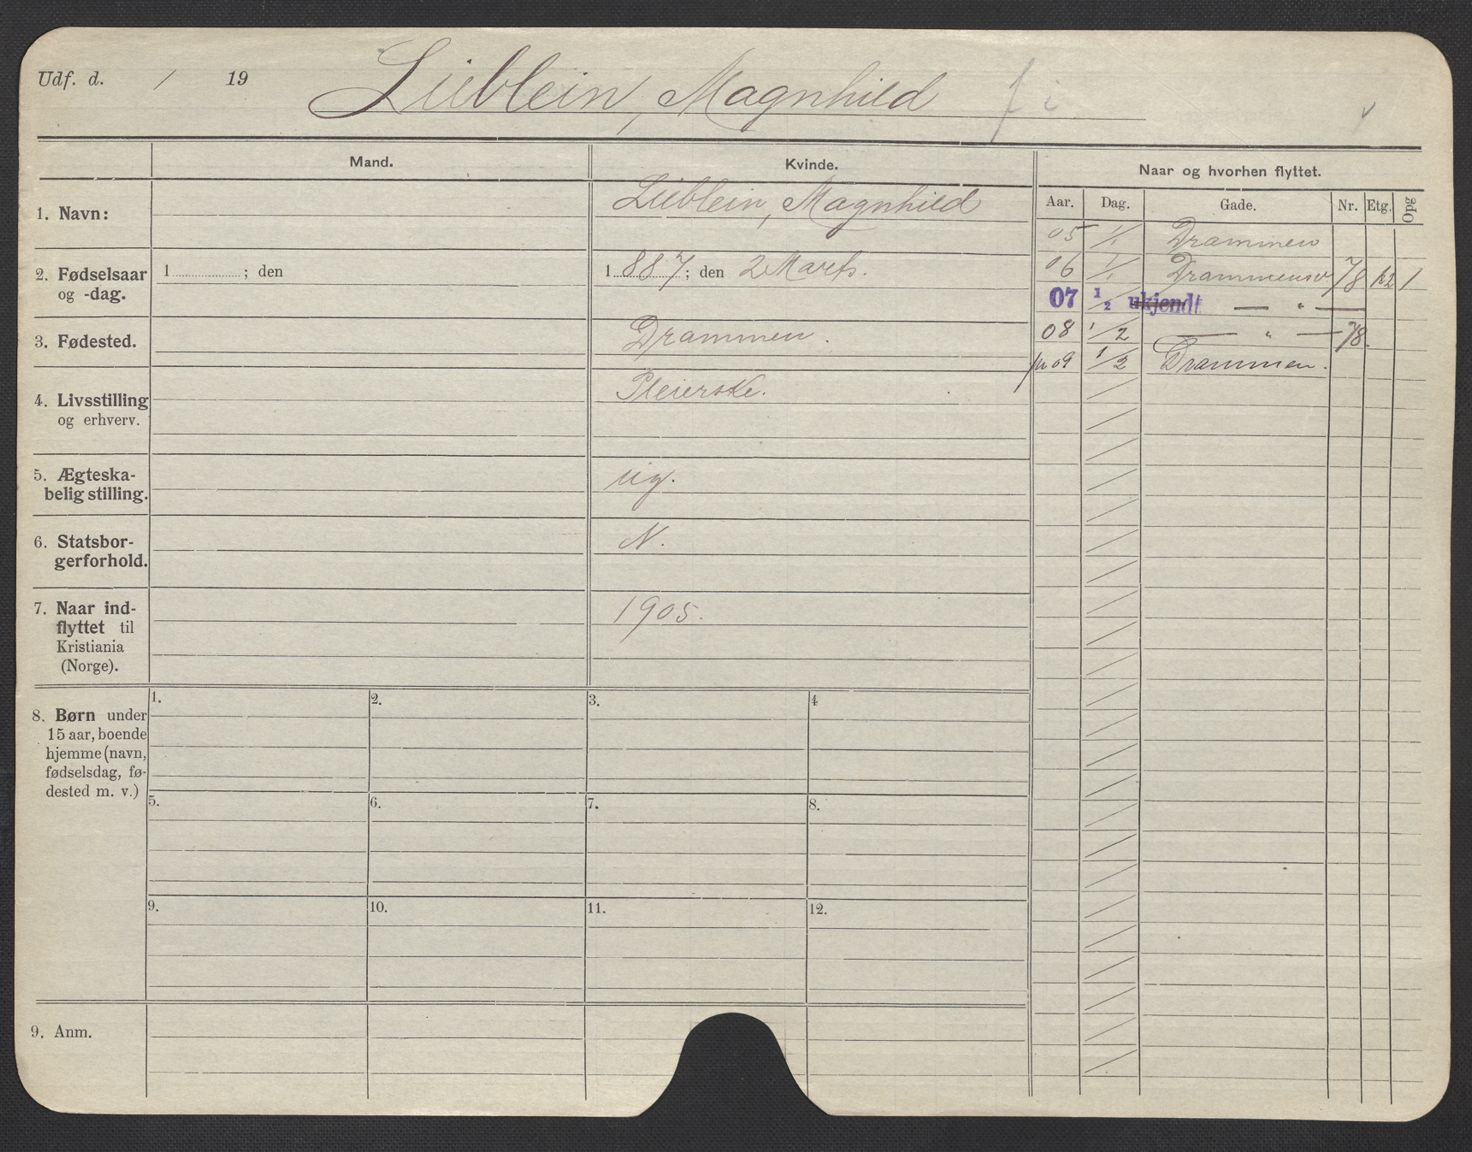 Udf. d. / 19 Lieblein, Magnhild
Mand. Kvinde. Naar og hvorhen flyttet.
Aar. Dag. Gade. Nr. Etg. Opg
1. Navn: Lieblein, Magnhild
05 1/1 Drammen
2. Fødselsaar 1 ; den 1 887; den 2 Marts.
og -dag.
06 1/1 Drammensv 78 1
07 1/2 ukjendt — " —
3. Fødested. Drammen.
08 1/2 — " — 78.
09 1/2 Drammen.
4. Livsstilling Pleierske.
og erhverv.
5. Ægteska-
belig stilling. ug.
6. Statsbor-
gerforhold. N.
7. Naar ind-
flyttet til 1905.
Kristiania
(Norge).
1. 2. 3. 4
8. Børn under
15 aar, boende
hjemme (navn,
fødselsdag, fø-
dested m. v.)
5. 6. 7. 8.
9. 10. 11. 12.
9. Anm.